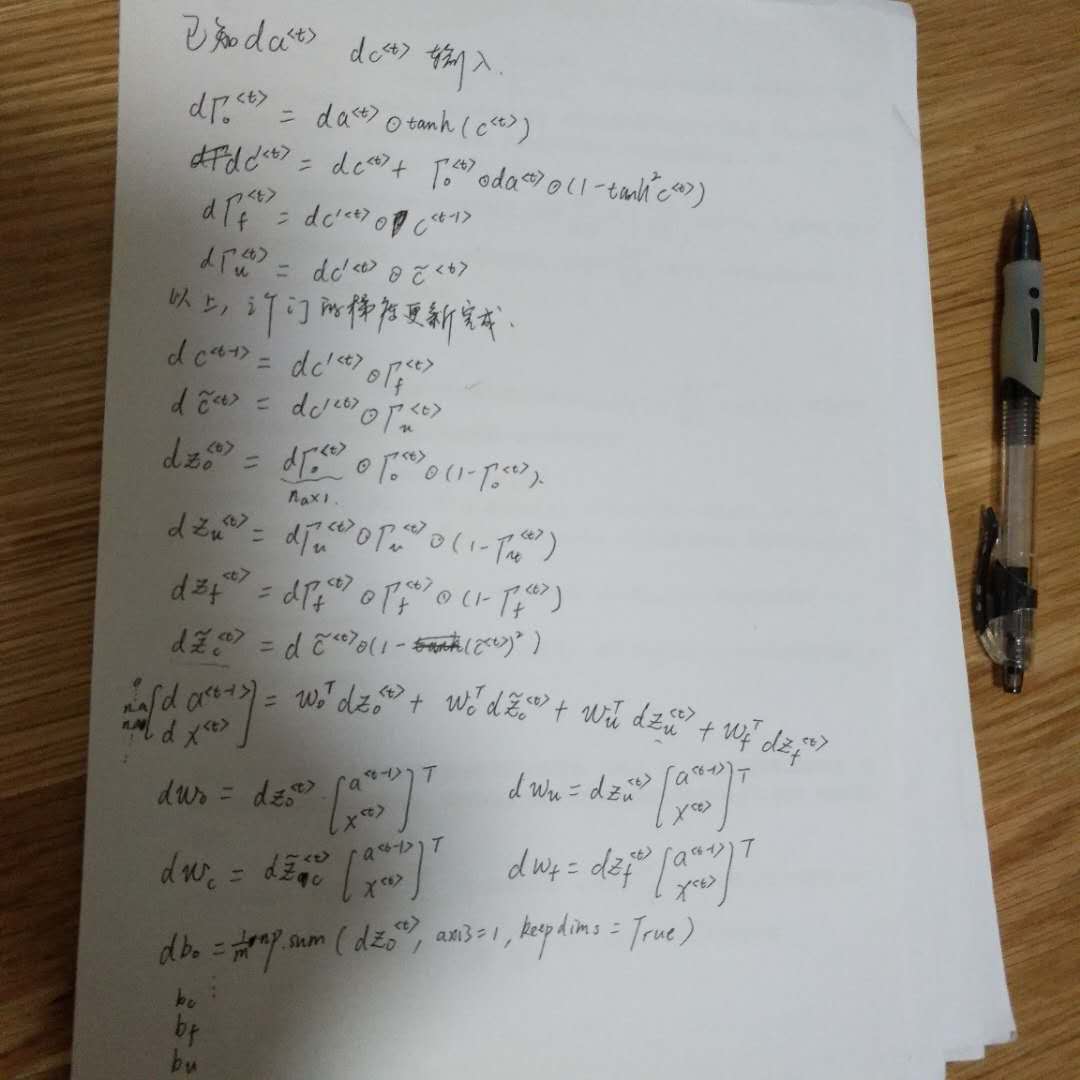 已知 da^{<t>} dc^{<t>} 输入.
dΓ_o^{<t>} = da^{<t>} ⊙ tanh(c^{<t>})
dc'^{<t>} = dc^{<t>} + Γ_o^{<t>} ⊙ da^{<t>} ⊙ (1-tanh²c^{<t>})
dΓ_f^{<t>} = dc'^{<t>} ⊙ c^{<t-1>}
dΓ_u^{<t>} = dc'^{<t>} ⊙ c̃^{<t>}
以上, 三个门的梯度更新完成.
dc^{<t-1>} = dc'^{<t>} ⊙ Γ_f^{<t>}
dc̃^{<t>} = dc'^{<t>} ⊙ Γ_u^{<t>}
dz_o^{<t>} = dΓ_o^{<t>} ⊙ Γ_o^{<t>} ⊙ (1-Γ_o^{<t>}).
n_a×1.
dz_u^{<t>} = dΓ_u^{<t>} ⊙ Γ_u^{<t>} ⊙ (1-Γ_u^{<t>})
dz_f^{<t>} = dΓ_f^{<t>} ⊙ Γ_f^{<t>} ⊙ (1-Γ_f^{<t>})
dz̃_c^{<t>} = dc̃^{<t>} ⊙ (1-(c̃^{<t>})²)
[da^{<t-1>} dx^{<t>}] = W_o^T dz_o^{<t>} + W_c^T dz̃_c^{<t>} + W_u^T dz_u^{<t>} + W_f^T dz_f^{<t>}
dw_o = dz_o^{<t>} · [a^{<t-1>} x^{<t>}]^T dw_u = dz_u^{<t>} [a^{<t-1>} x^{<t>}]^T
dw_c = dz̃_c^{<t>} [a^{<t-1>} x^{<t>}]^T dw_f = dz_f^{<t>} [a^{<t-1>} x^{<t>}]^T
db_o = 1/m np.sum(dz_o^{<t>}, axis=1, keepdims=True)
b_c ⋮
b_f
b_u